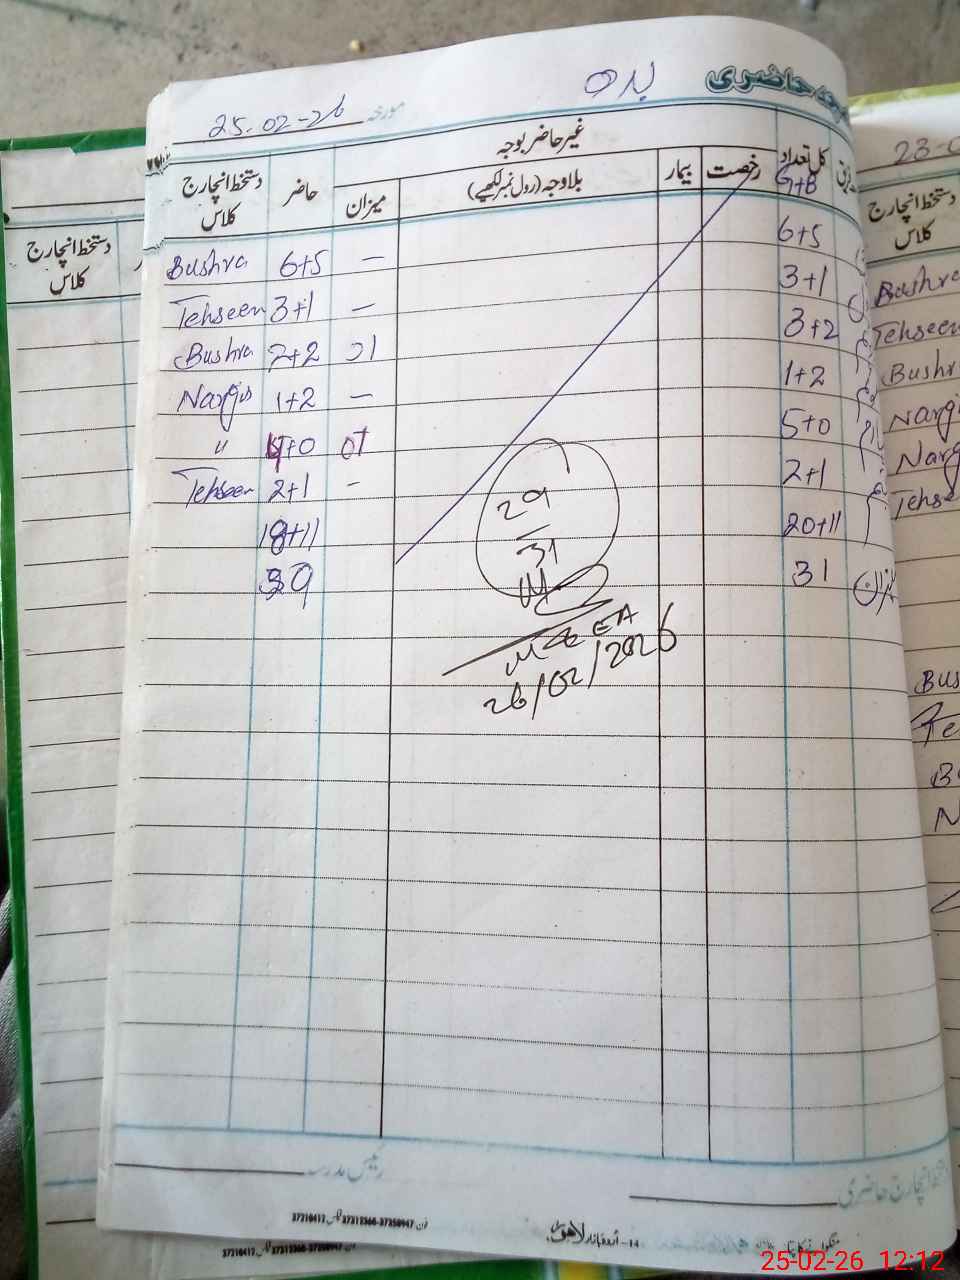 حاضری
بدھ
مورخہ 25-02-26
کل تعداد G+B رخصت بیمار غیر حاضر بوجہ حاضر دستخط انچارج کلاس
بلاوجہ (رول نمبر لکھیے) میزان
6+5 — 6+5 Bushra
3+1 — 3+1 Tehseen
3+2 01 2+2 Bushra
1+2 — 1+2 Nargis
5+0 01 4+0 "
2+1 - 2+1 Tehseen
20+11 18+11
میزان 31 29
29
31
MEA
26/02/2026
دستخط انچارج حاضری
رئیس مدرسہ
14-اُردو بازار لاہور
فون 37350947-37312366 فیکس 37210417
23-0
دستخط انچارج
کلاس
Bushra
Tehseen
Bushr
Nargi
Narg
Tehse
Bus
Te
B
N
دستخط انچارج
کلاس
25-02-26 12:12